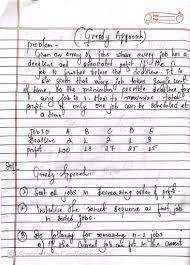 (Greedy Approach)
problem -
Given an array of jobs where every job has a
deadline and associated profit if the
job is finished before the deadline. It is
also given that every job takes single unit
of time, so the minimum possible deadline for
any job is 1. How to maximize total
profit if only one job can be scheduled at
a time.
Job ID A B C D E
Deadline 2 1 2 1 3
profit 100 19 27 25 15
Greedy Approach
① Sort all jobs in decreasing order of profit.
② Initialize the result sequence as first job
in sorted jobs.
③ Do following for remaining n-1 jobs
a) If the current job can fit in the current